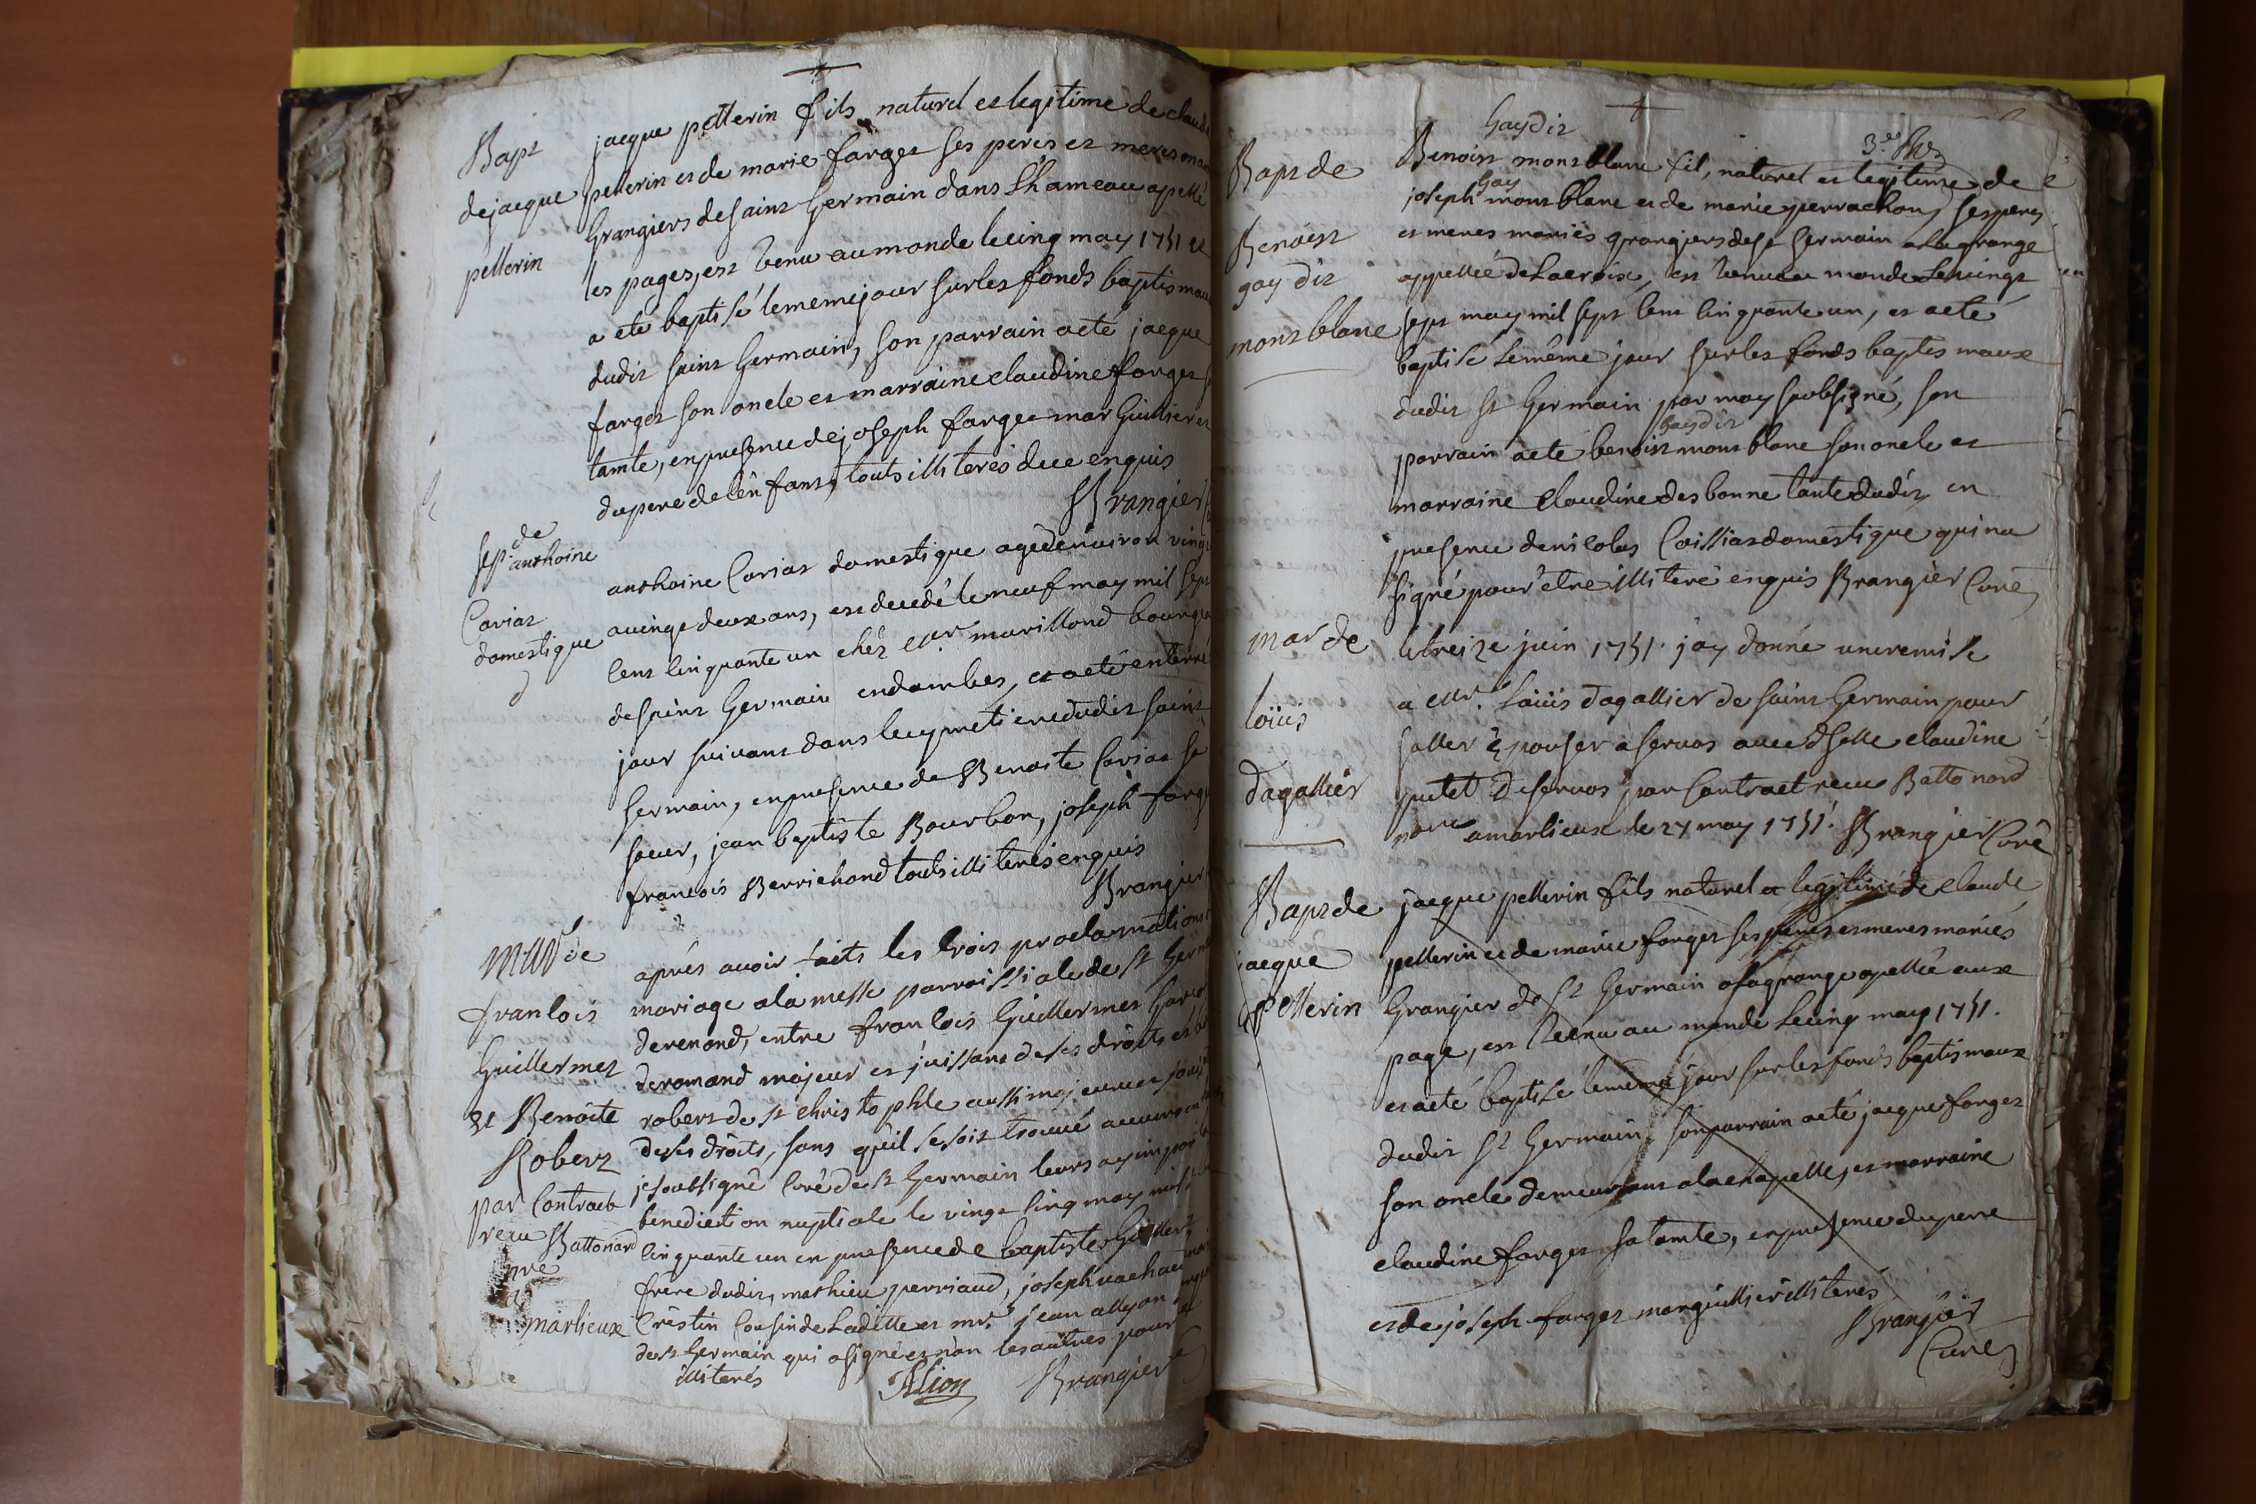 Bapt
de jacque
pellerin
jacque pellerin fils naturel et legitime de claude
pellerin et de marie farget ses peres et meres
Grangiers de saint Germain dans L'hameau apellé
les pages, est venu au monde le cinq may 1751 et
a eté baptisé le meme jour sur les fonds baptismaux
dudit saint Germain, son parrain a eté jacque
farget son oncle et marraine claudine farget
tante, en presence de joseph farget marguillier et
du pere de l'enfant, touts illiterés de ce enquis
Brangier
sep.re de
anthoine
Coriat
domestique
anthoine Coriat domestique agé d'environ vingt
a vingt deux ans, est decedé le neuf may mil sept
cent cinquante un chéz Mr. marillond bourgeois
de saint Germain en dombes, et a eté enterré
jour suivant dans le cymetiere dudit saint
Germain, en presence de Benoite Coriat sa
soeur, jean baptiste Bourbon, joseph farget
francois Berrichond touts illiterés enquis
Brangier
Mar de
francois
Guillermet
et Benoite
Robert
par Contract
recu Battonard
nre
a
marlieux
aprés avoir faits les trois proclamations
mariage a la messe parroissiale de st Germain
de renond, entre francois Guillermet garcon
de romand majeur et jouissant de ses droits et
robert de st christophle aussi majeure et
de ses droits, sans qu'il se soit trouvé aucun
je soussigné Curé de st Germain leurs ay imparti
benediction nuptiale le vingt cinq may mil
cinquante un en presence de baptiste
frere dudit, mathieu perriaud, joseph
Crestin Cousin de Laditte et mr. jean allyon
de st Germain qui a signé et non les autres pour
illiterés
Alion Brangier
3.e
Bapt de
Benoist
gay dit
montblanc
gay dit
Benoist montblanc fils naturel et legitime de
gay
joseph montblanc et de marie perrachon, ses peres
et meres mariés grangiers de st Germain a la grange
appellée de Lacroix, est venu au monde Le vingt
sept may mil sept cent cinquante un, et a eté
baptisé Le même jour sur les fonds baptismaux
dudit st Germain par moy soubsigné, son
gay dit
parrain a eté benoist montblanc son oncle et
marraine Claudine desbonne tante dudit, en
presence de nicolas Coissiat domestique qui n'a
signé pour etre illiteré enquis Brangier Curé
Mar de
loüis
dagallier
Le treize juin 1751. j'ay donné une remise
a Mr. Loüis dagallier de saint Germain pour
s'aller épouser a servas avec dselle claudine
putet de servas par Contract recu Battonard
nore a marlieux le 27 may 1751. Brangier Curé
Bapt de
jacque
Pellerin
jacque pellerin fils naturel et legitime de claude
pellerin et de marie farget ses peres et meres mariés
Grangier de st Germain a la grange apellée aux
page, est venu au monde Le cinq may 1751.
et a eté baptisé le meme jour sur les fonds baptismaux
dudit st Germain, son parrain a eté jacque farget
son oncle demeurant a la chapelle, et marraine
claudine farget sa tante, en presence du pere
et de joseph farget marguillier illiterés
Brangier
Curé